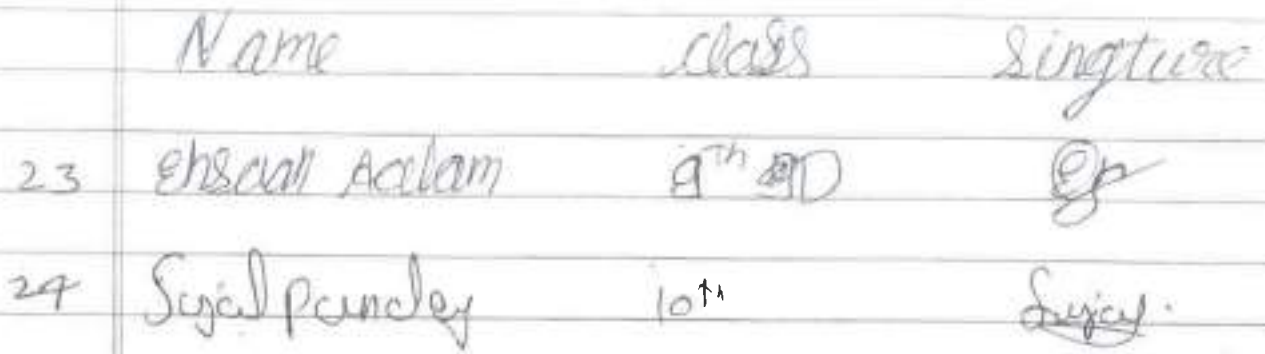 Name class Singture
23 Ehsaan Aalam 9th D
24 Sujal Pandey 10th Sujal.